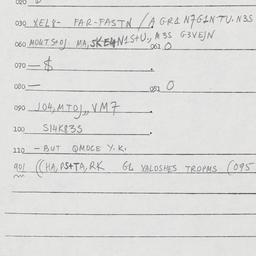 020
030 XEL8- FAR-FASTN / A GR1 N7G1N TU. N3S
060 MONTS+OJ MA, SKE4N1S+U,, A 3S G3VEJN
061 O
070 — $
080 —
081 O
090 J04, MTOJ,, VM7
100 S14K83S
110 — BUT QMDCE Y.K.
901 ((HA, PS+TA, RK GL VALOSHES TROPMS (095